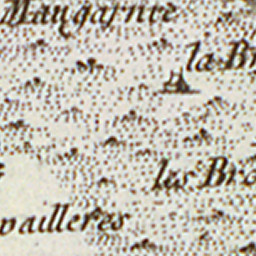 Maugarnie
la Br
las Bro
vailleres